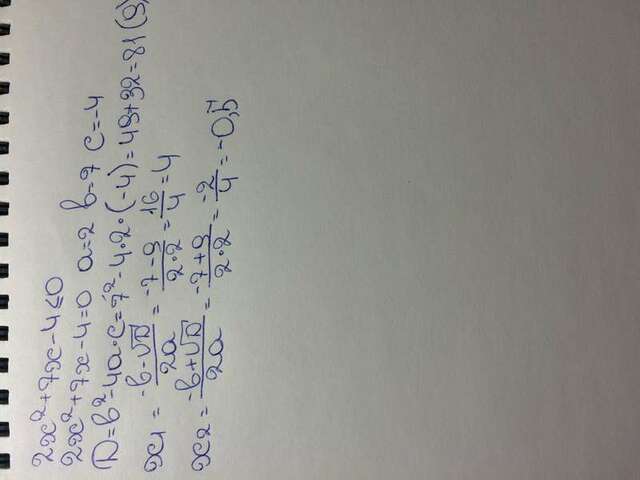 2x²+7x-4≤0
2x²+7x-4=0 a=2 b=7 c=-4
D=b²-4a·c=7²-4·2·(-4)=49+32=81(9)
x1 = (-b-√D)/2a = (-7-9)/2·2 = 16/4 = 4
x2 = (-b+√D)/2a = (-7+9)/2·2 = -2/4 = -0,5